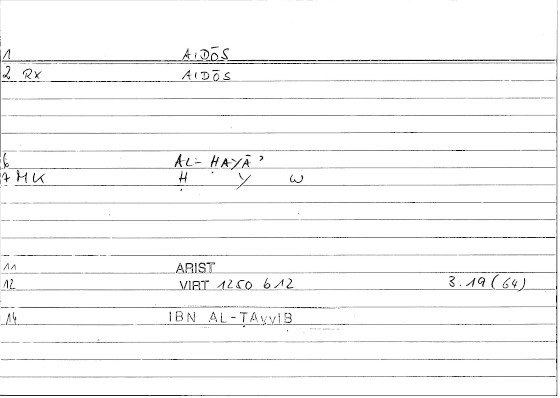 1 AIDŌS
2 RX AIDŌS
6 AL-ḤAYĀʾ
7 MK Ḥ Y W
11 ARIST
12 VIRT 1250 b 12 3.19 (64)
14 IBN AL-ṬAYYIB